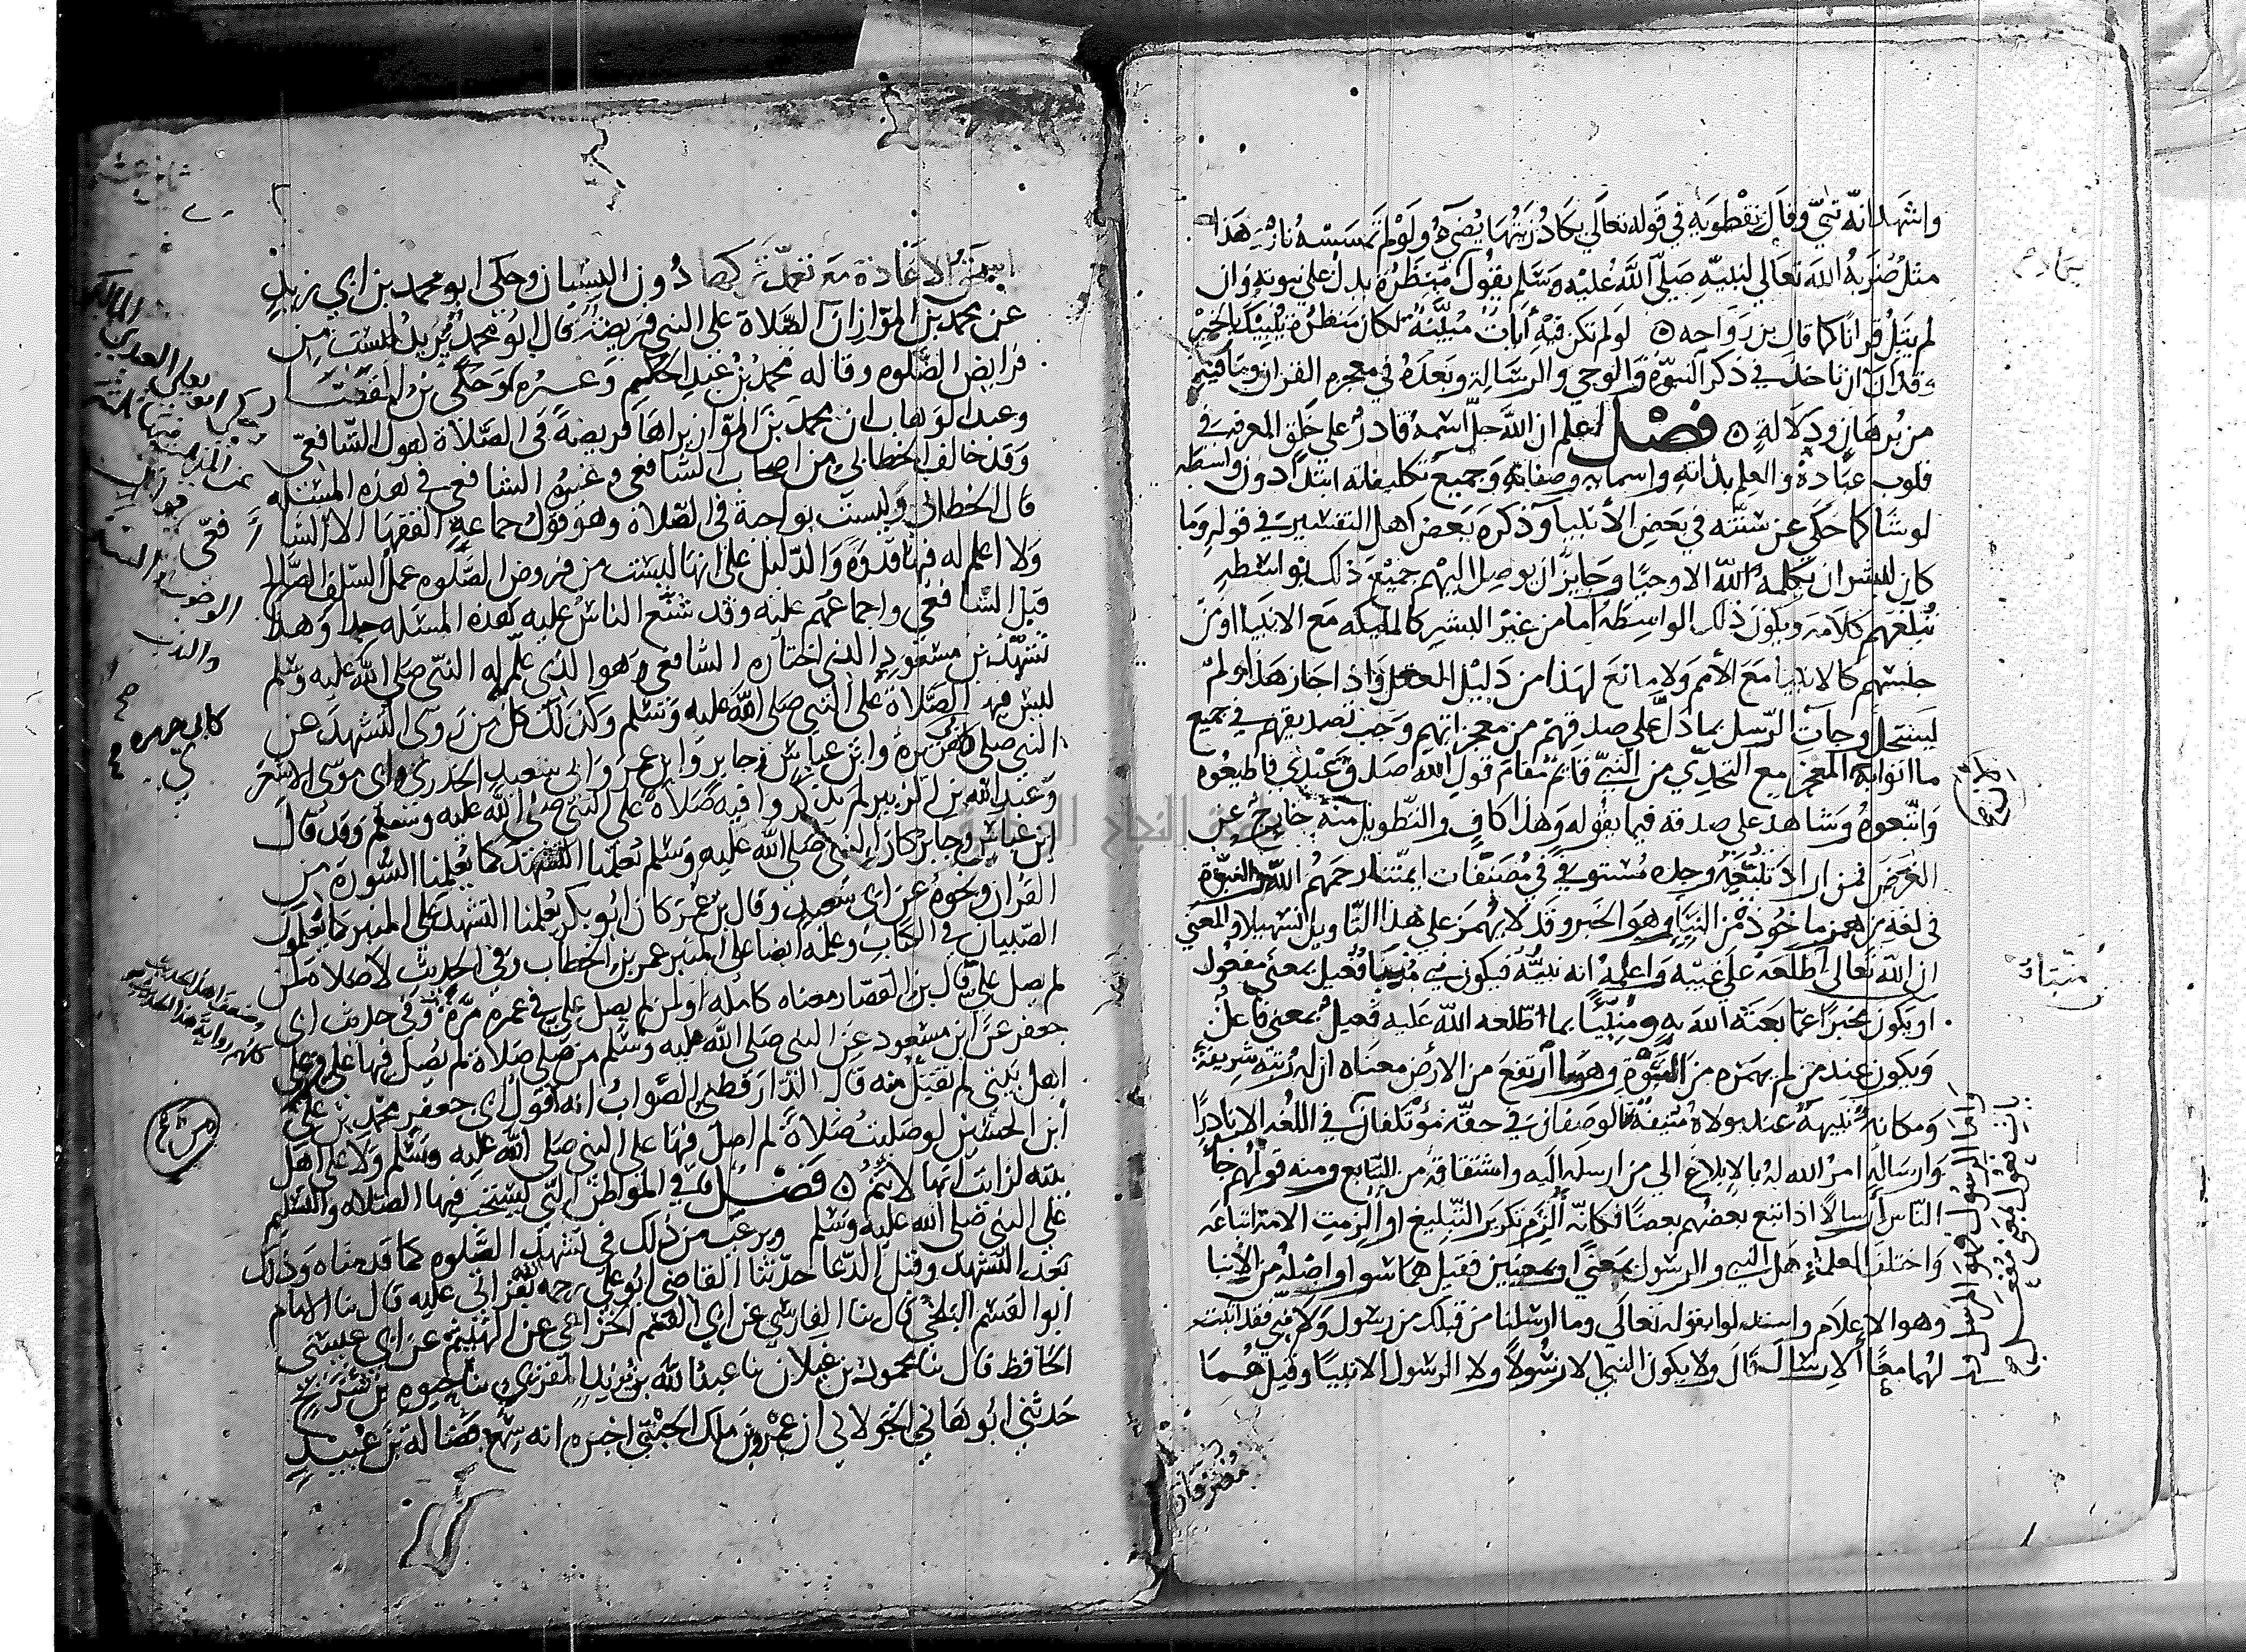 واشهد انه نبي وقال نفطويه في قوله تعالى يكاد زيتها يضيء ولو لم تمسسه نار هذا
مثل ضربه الله تعالى لنبيه صلى الله عليه وسلم يقول منظره يدل على نبوته وان
لم يتل قرانا كما قال بن رواحه لو لم تكن فيه آيات مبينة لكان منظره ينبيك بالخبر
وقد آن ان ناخذ في ذكر النبوة والوحي والرسالة وبعده في معجزه القران وما فيه
من برهان ودلالة فصل اعلم ان الله جل اسمه قادر على خلق المعرفه في
قلوب عباده والعلم بذاته واسمايه وصفاته وجميع تكليفاته ابتدا دون واسطه
لو شا كما حكي عن سنته في بعض الأنبيا وذكره بعض اهل التفسير في قوله وما
كان لبشر ان يكلمه الله الا وحيا وجايز ان يوصل اليهم جميع ذلك بواسطه
تبلغهم كلامه ويكون ذلك الواسطه اما من غير البشر كالمليكه مع الانبيا او من
جنسهم كالانبيا مع الأمم ولا مانع لهذا من دليل العقل واذا جاز هذا ولم
يستحل وجات الرسل بما دل على صدقهم من معجزاتهم وجب تصديقهم في جميع
ما اتوا به لان المعجز مع التحدي من النبي قائم مقام قول الله صدق عبدي فاطيعوه
واتبعوه وشاهد على صدقه فيما يقوله وهذا كاف والتطويل منه خارج عن
الغرض فمن اراد تتبعه وجده مستوفي في مصنفات ايمتنا رحمهم الله والنبوة
في لغة من همز ماخوذ من النبإ وهو الخبر وقد لا يهمز على هذا التاويل تسهيلا والمعنى
ان الله تعالى اطلعه على غيبه واعلمه انه نبيه فيكون نبي منبأ فعيل بمعنى مفعول
او يكون مخبرا عما بعثه الله به ومنبيا بما اطلعه الله عليه فعيل بمعنى فاعل
ويكون عند من لم يهمزه من النبوة وهو ما ارتفع من الارض معناه ان له رتبة شريفة
ومكانة نبيهة عند مولاه منيفة فالوصفان في حقه مؤتلفان
في اللغه الا نادرا
وارساله امر الله له بالابلاغ الى من ارسله اليه واشتقاقه من التتابع ومنه قولهم جا
الناس أرسالا اذا تبع بعضهم بعضا فكانه ألزم تكرير التبليغ او ألزمت الامة اتباعه
واختلف العلما هل النبي والرسول بمعنى او بمعنيين فقيل هما سوا واصله من الانبا
وهو الاعلام واستدلوا بقوله تعالى وما ارسلنا من قبلك من رسول ولا نبي فقد اثبت
لهما معا الارسال قال ولا يكون النبي الا رسولا ولا الرسول الا نبيا وقيل هما
مفترقان
واما الرسول فهو المرسل
يات فعول بمعنى مفعل
الاعادة مع تعمد تركها دون النسيان وحكى ابو محمد بن ابي زيد
عن محمد بن المواز ان الصلاة على النبي فريضة قال ابو محمد يريد ليست من
فرايض الصلوه وقاله محمد بن عبد الحكم وغيره وحكى بن القصار
وعبد الوهاب ان محمد بن المواز يراها فريضة في الصلاة كقول الشافعي
وقد خالف الخطابي من اصحاب الشافعي وغيره الشافعي في هذه المسئله
قال الخطابي وليست بواجبة في الصلاة وهو قول جماعة الفقها الا الشافعي
ولا اعلم له فيها قدوة والدليل على انها ليست من فروض الصلوه عمل السلف الصالح
قبل الشافعي واجماعهم عليه وقد شنع الناس عليه هذه المسئله جدا وهذا
تشهد بن مسعود الذي اختاره الشافعي وهو الذي علمه له النبي صلى الله عليه وسلم
ليس فيه الصلاة على النبي صلى الله عليه وسلم وكذلك كل من روى التشهد عن
النبي صلى هريرة وابن عباس وجابر وابن عمر وابي سعيد الخدري وابي موسى الاشعري
وعبد الله بن الزبير لم يذكروا فيه صلاة على النبي صلى الله عليه وسلم وقد قال
ابن عباس وجابر كان النبي صلى الله عليه وسلم يعلمنا التشهد كما يعلمنا السورة من
القران ونحوه عن ابي سعيد وقال بن عمر كان ابو بكر يعلمنا التشهد على المنبر كما تعلمون
الصبيان في الكتاب وعلمه ايضا على المنبر عمر بن الخطاب وفي الحديث لا صلاة لمن
لم يصل علي قال بن القصار معناه كامله او لمن لم يصل علي في عمره مرة وفي حديث ابي
جعفر عن ابن مسعود عن النبي صلى الله عليه وسلم من صلى صلاة لم يصل فيها علي وعلى
اهل بيتي لم تقبل منه قال الدارقطني الصواب انه قول ابي جعفر محمد بن علي
ابن الحسين لو صليت صلاة لم اصل فيها على النبي صلى الله عليه وسلم ولا على اهل
بيته لرايت انها لا تتم فصل في المواطن التي يستحب فيها الصلاه والتسليم
على النبي صلى الله عليه وسلم ويرغب من ذلك في تشهد الصلوه كما قدمناه وذلك
بعد التشهد وقبل الدعا حدثنا القاضي ابو علي رحمه الله بقراتي عليه قال نا الامام
ابو القسم البلخي قال نا الفارسي عن ابي القسم الخزاعي عن الهيثم عن ابي عيسى
الحافظ قال نا محمود بن غيلان نا عبد الله بن يزيد المقري نا حيوه بن شريح
حدثني ابو هاني الخولاني ان عمرو بن ملك الجنبي اخبره انه سمع فضالة بن عبيد
وضعف اهل الحديث
كلهم رواية هذا الحديث